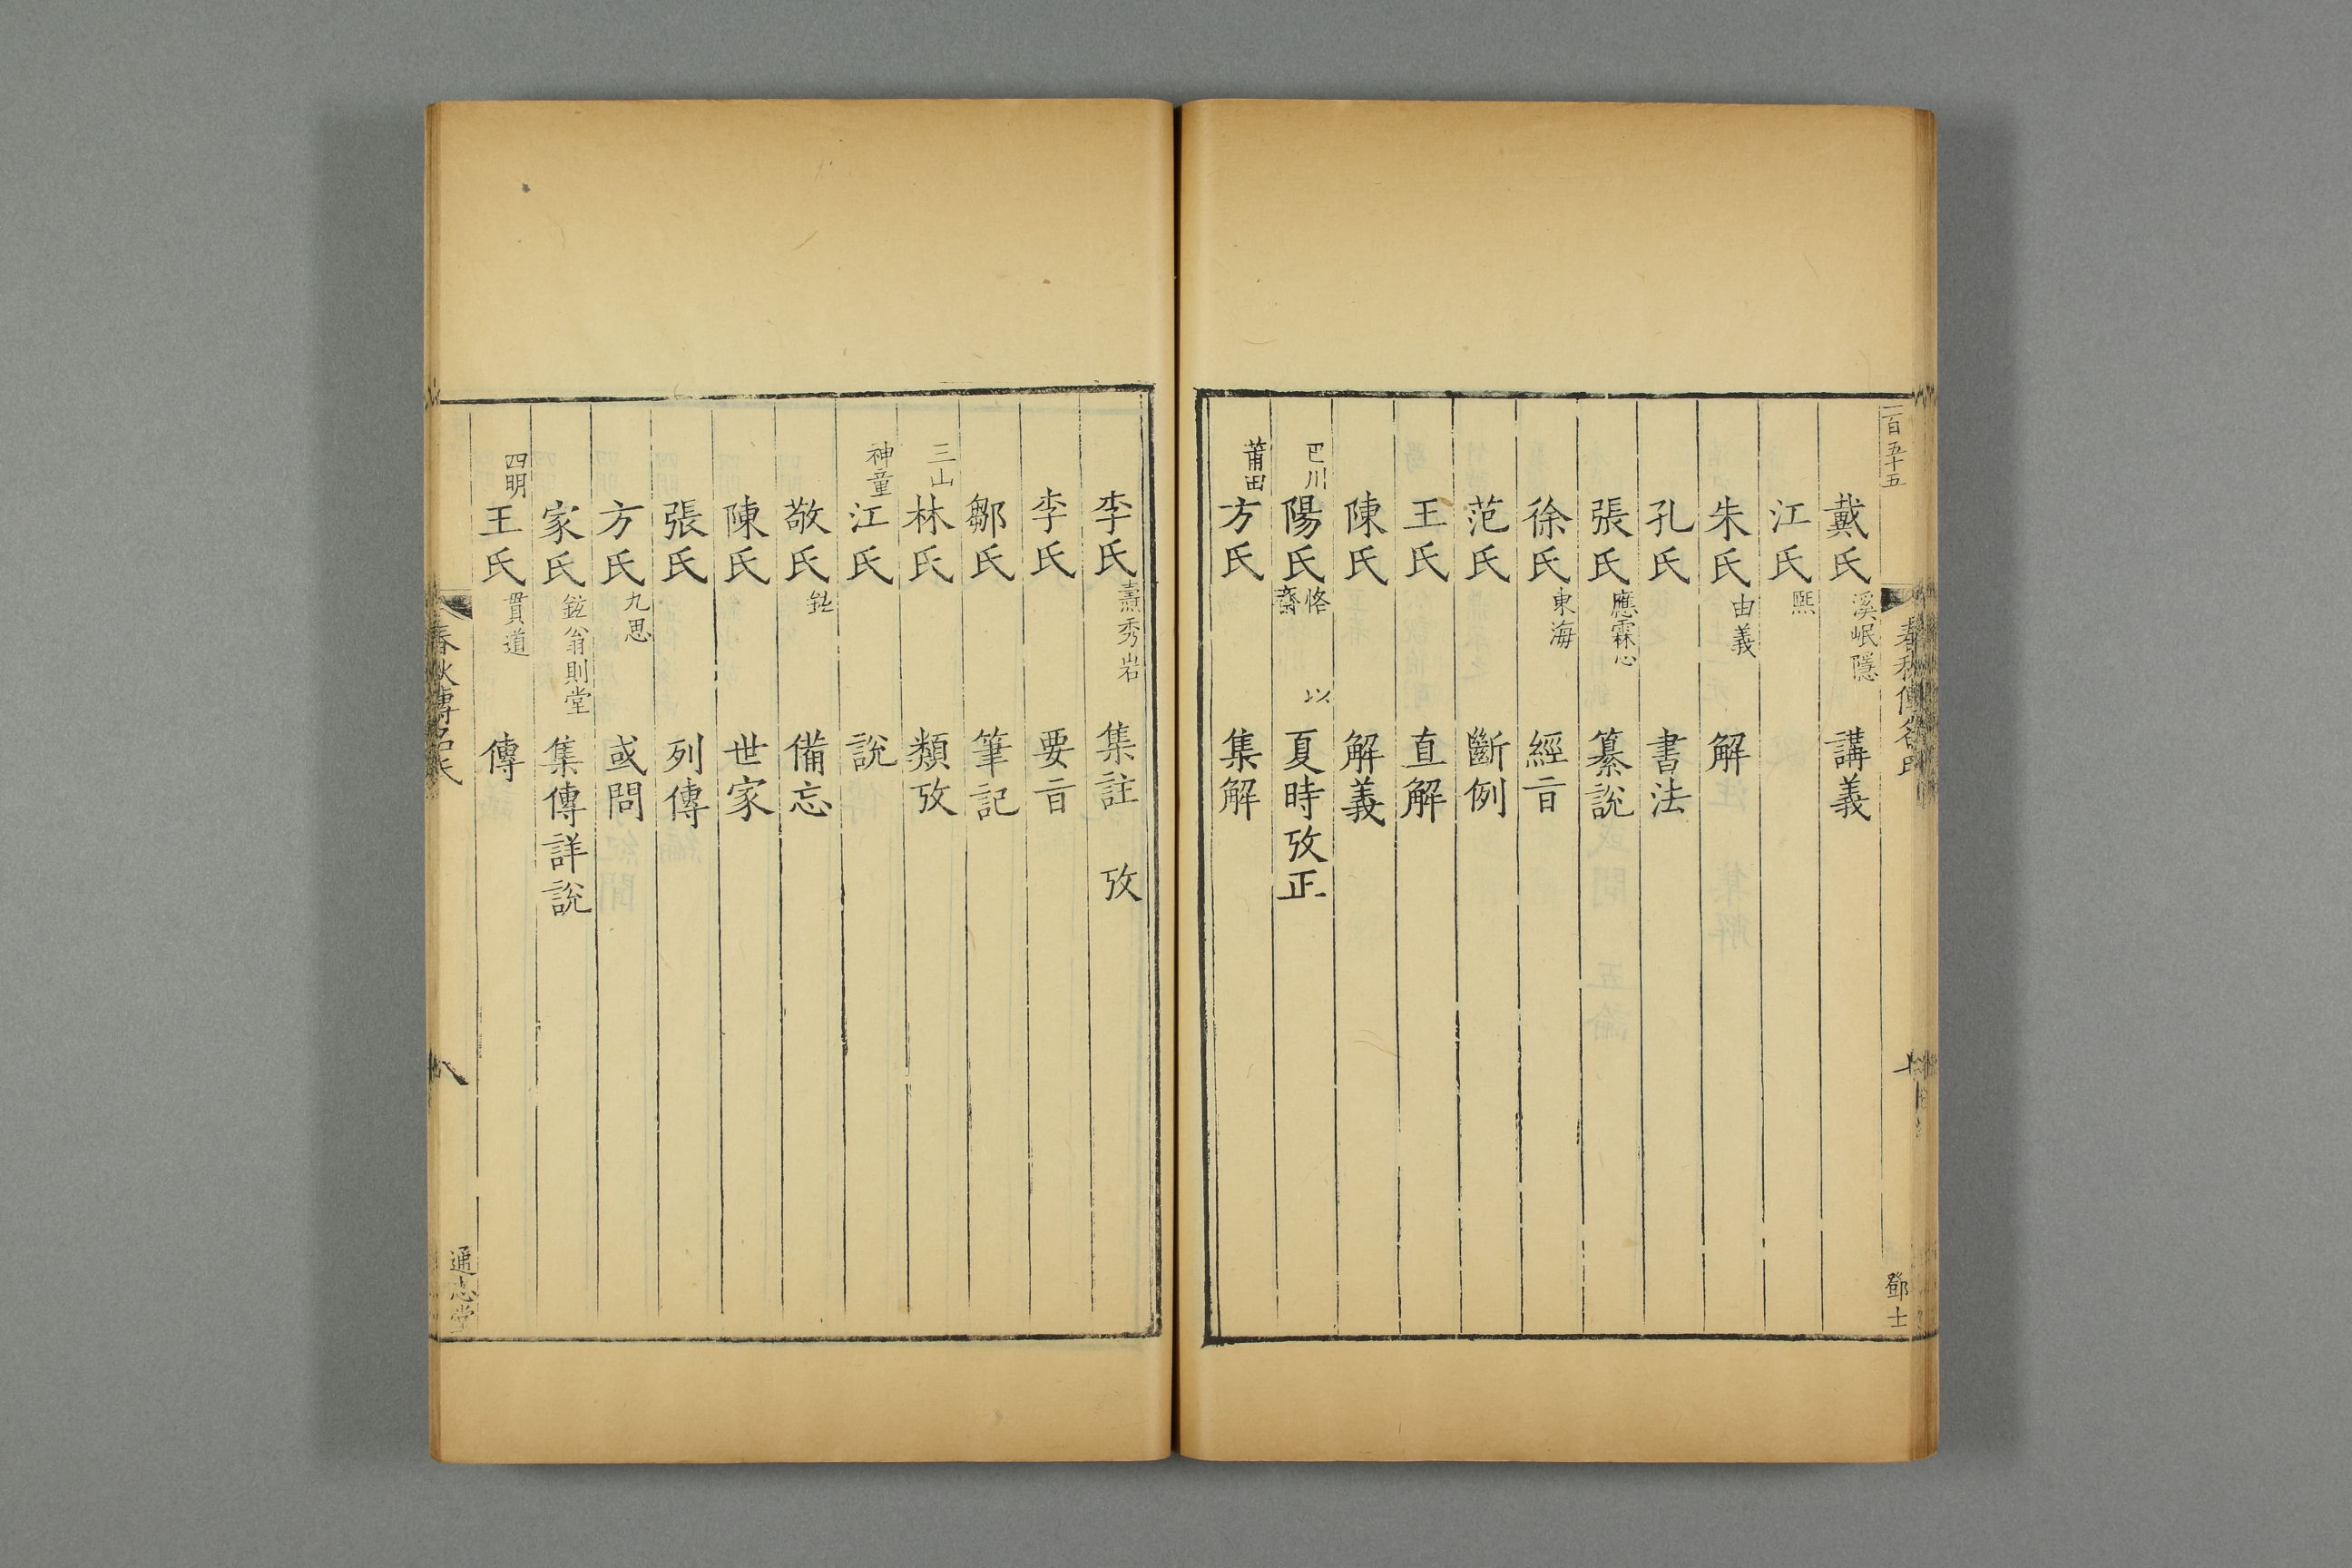 一百五十五
春秋傳名氏
鄧士
戴氏溪岷隱 講義
江氏熙
朱氏由義 解
孔氏 書法
張氏應霖心 纂說
徐氏東海 經㫖
范氏 斷例
王氏 直解
陳氏 解義
巴川陽氏恪以齋 夏時攷正
莆田方氏 集解
李氏燾秀岩 集註 攷
李氏 要㫖
鄒氏 筆記
三山林氏 類攷
神童江氏 說
敬氏鉉 備忘
陳氏 世家
張氏 列傳
方氏九思 或問
家氏鉉翁則堂 集傳詳說
四明王氏貫道 傳
春秋傳名氏
八
通志堂